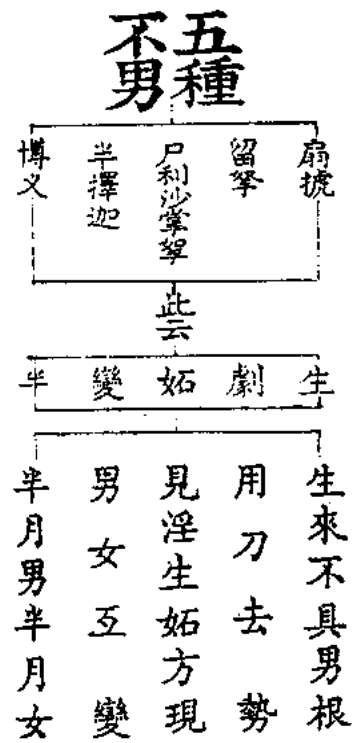 五種
不男
扇搋
留拏
尸利沙掌拏
半擇迦
博叉
此云
生
劇
妬
變
半
生來不具男根
用刀去勢
見淫生妬方現
男女互變
半月男半月女